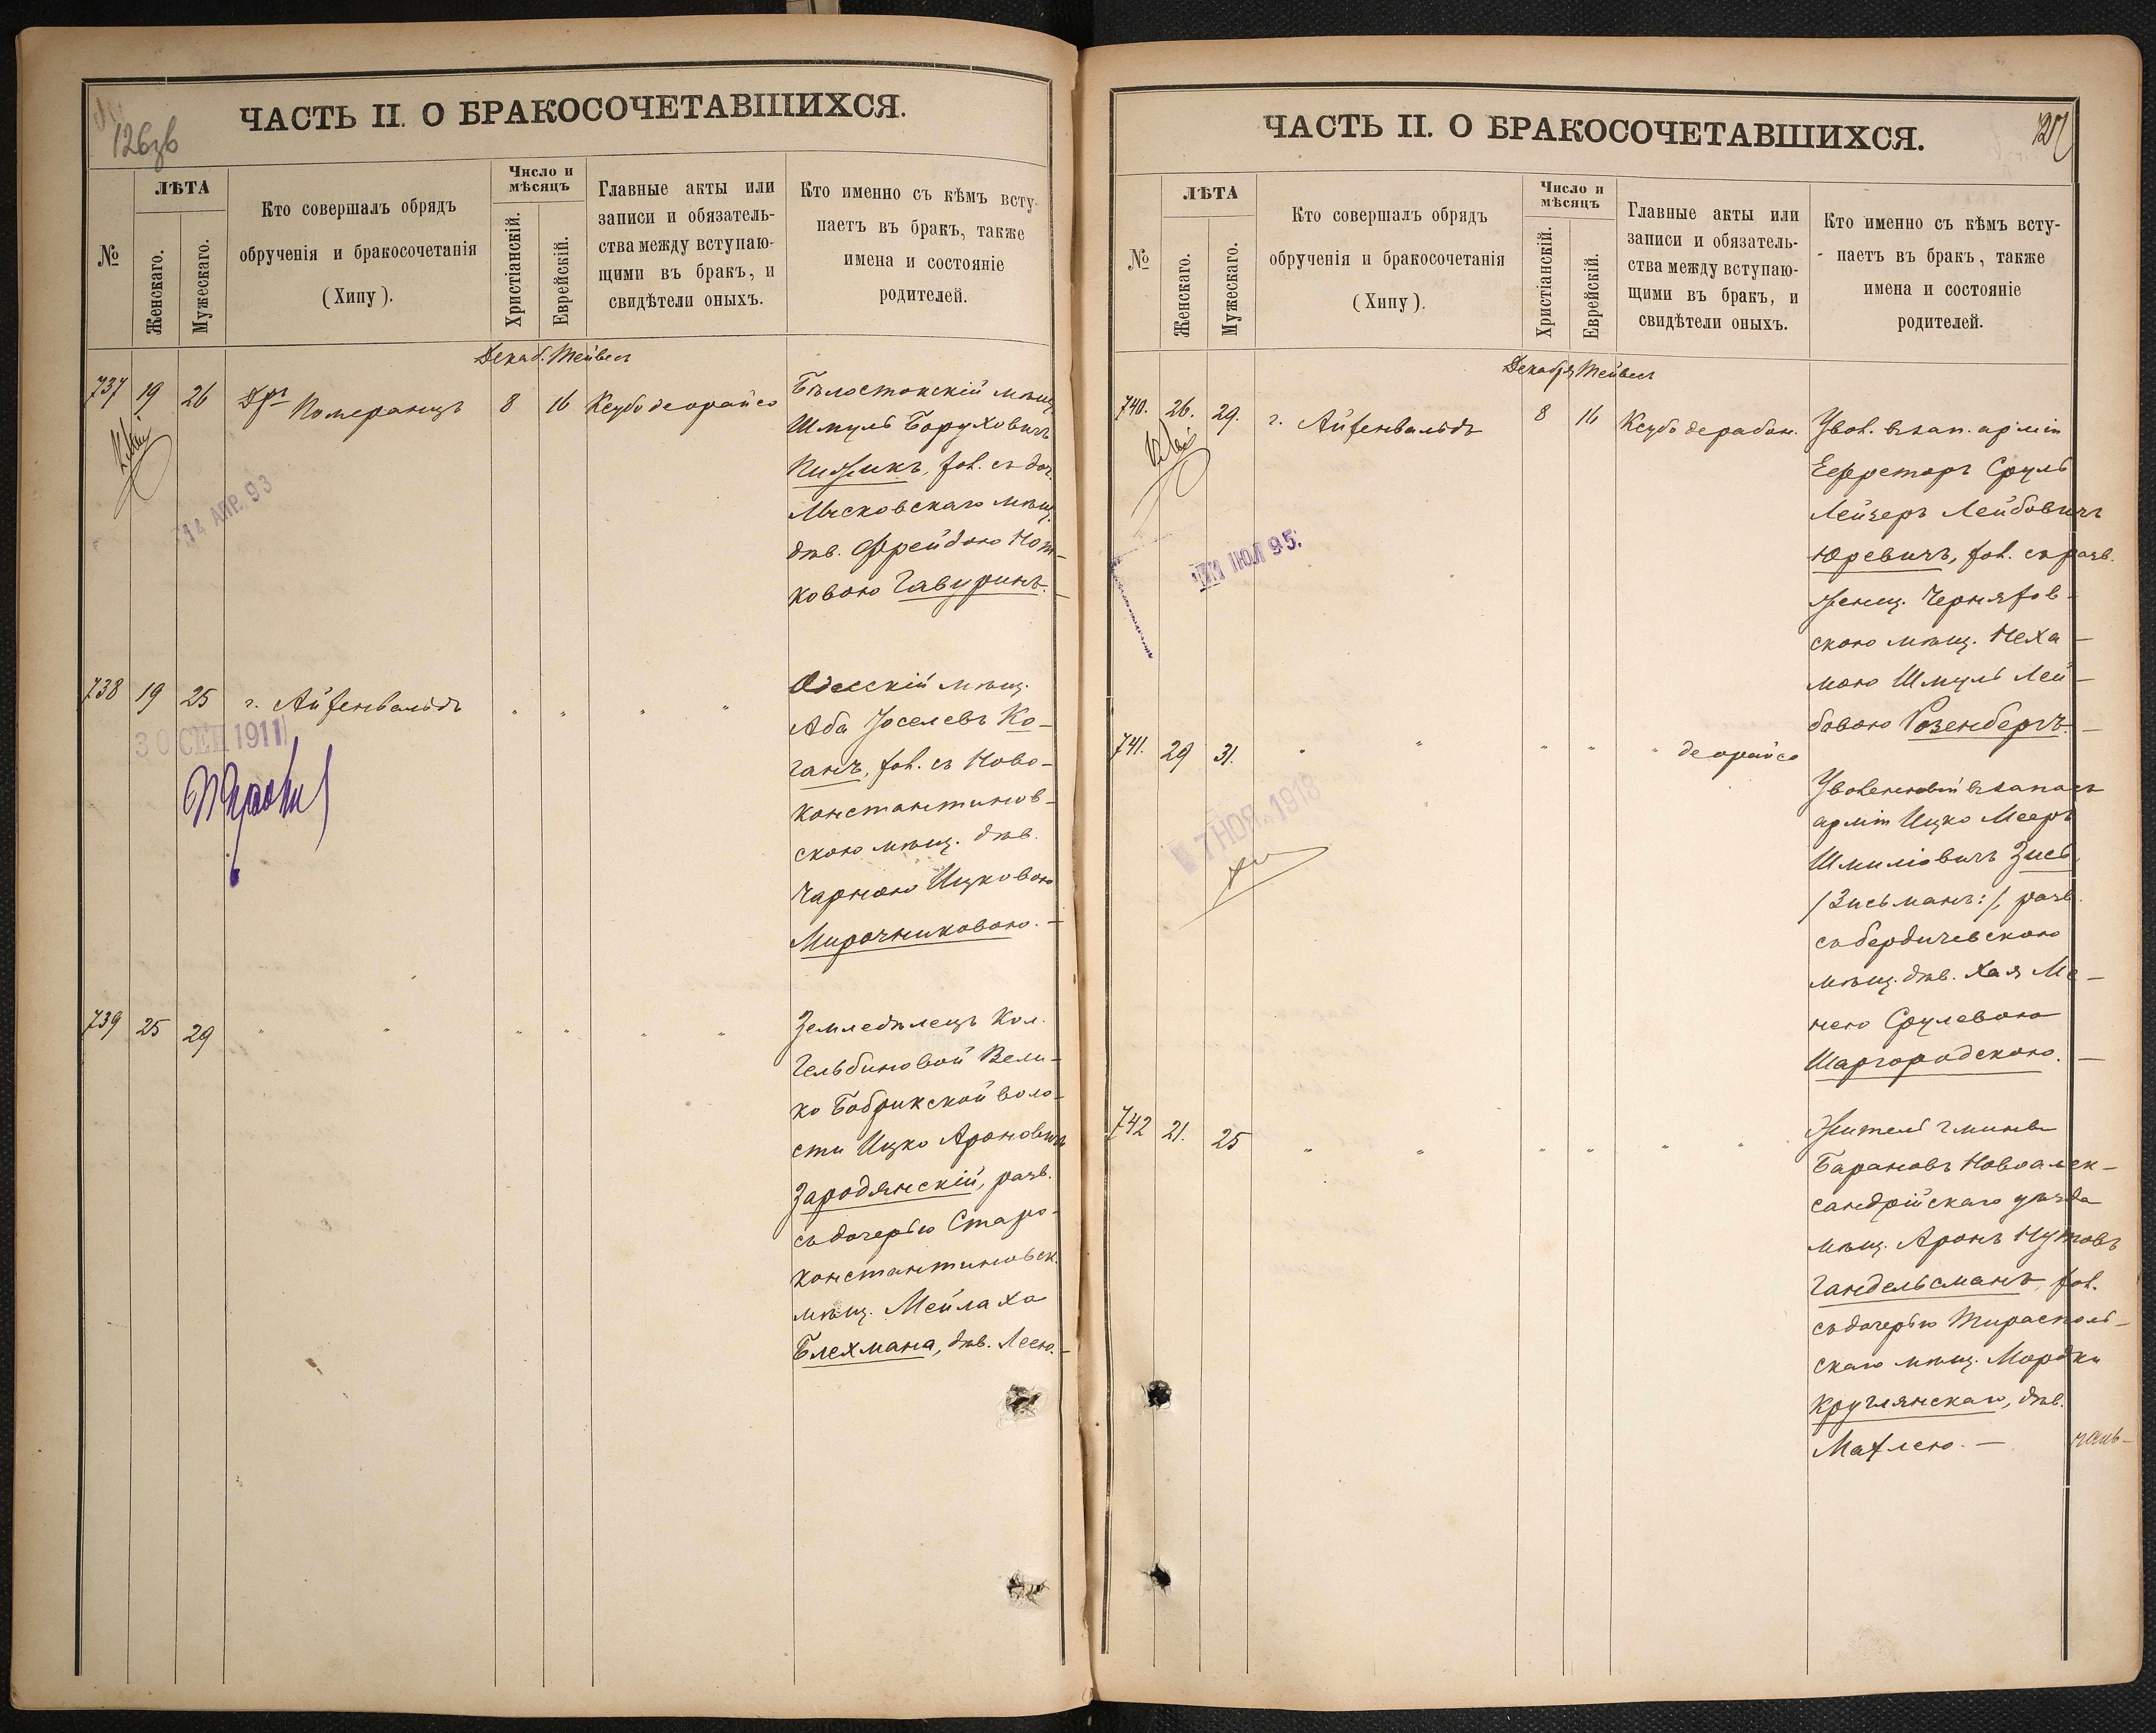 126зв
ЧАСТЬ II. О БРАКОСОЧЕТАВШИХСЯ.
№
ЛѢТА
Женскаго.
Мужескаго.
Кто совершалъ обрядъ
обрученія и бракосочетанія
(Хипу).
Число и
мѣсяцъ
Христіанскій.
Еврейскій.
Главные акты или
записи и обязатель-
ства между вступаю-
щими въ бракъ, и
свидѣтели оныхъ.
Кто именно съ кѣмъ всту-
паетъ въ бракъ, также
имена и состояніе
родителей.
Декаб. Тейвес
737 19 26 Дръ Померанцъ 8 16 Ксубо деорайсо
Бѣлостокскій мѣщ.
Шмуль Боруховичъ
Пижикъ, хол. съ доч.
Мясковскаго мѣщ.
дѣв. Фрейдою Нот-
ковою Гавуринъ.—
14 АПР. 93
738 19 25 г. Айзенвальдъ " " " "
Одесскій мѣщ.
Аба Іоселевъ Ко-
ганъ, хол. съ Ново-
константинов-
скою мѣщ. дѣв.
Чарною Ицковою
Мирочниковою.—
30 СЕН 1911
739 25 29 " " " " " "
Земледѣлецъ Кол.
Гельбиновой Вели-
ко Бобрикской воло-
сти Ицко Ароновичъ
Зародянскій, разв.
съ дочерью Старо-
константиновск.
мѣщ. Мейлаха
Блехмана, дѣв. Леею.—
127
ЧАСТЬ II. О БРАКОСОЧЕТАВШИХСЯ.
№
ЛѢТА
Женскаго.
Мужескаго.
Кто совершалъ обрядъ
обрученія и бракосочетанія
(Хипу).
Число и
мѣсяцъ
Христіанскій.
Еврейскій.
Главные акты или
записи и обязатель-
ства между вступаю-
щими въ бракъ, и
свидѣтели оныхъ.
Кто именно съ кѣмъ всту-
паетъ въ бракъ, также
имена и состояніе
родителей.
Декабря Тейвес
740. 26. 29. г. Айзенвальдъ 8 16 Ксубо дерабон.
Увол. въ зап. арміи
Ефрейторъ Сруль
Лейзеръ Лейбовичъ
Юревичъ, хол. съ разв.
женщ. Черняхов-
скою мѣщ. Неха-
мою Шмуль Лей-
бовою Розенбергъ.—
ІЮЛ 95.
741. 29 31. " " " " " деорайсо
Уволенный въ запасъ
арміи Ицко Мееръ
Шмиліовичъ Зись
/Зисьманъ:/, разв.
съ бердичевскою
мѣщ. дѣв. Хая Ме-
нею Срулевою
Шаргородскою.—
7 НОЯ. 1918
742 21. 25 " " " " " "
Житель гмины
Барановъ Новоалек-
сандрійскаго уѣзда
мѣщ. Аронъ Нутовъ
Гандельсманъ, хол.
съ дочерью Тирасполь-
скаго мѣщ. Мордки
Круглянскаго, дѣв.
Махлею.—